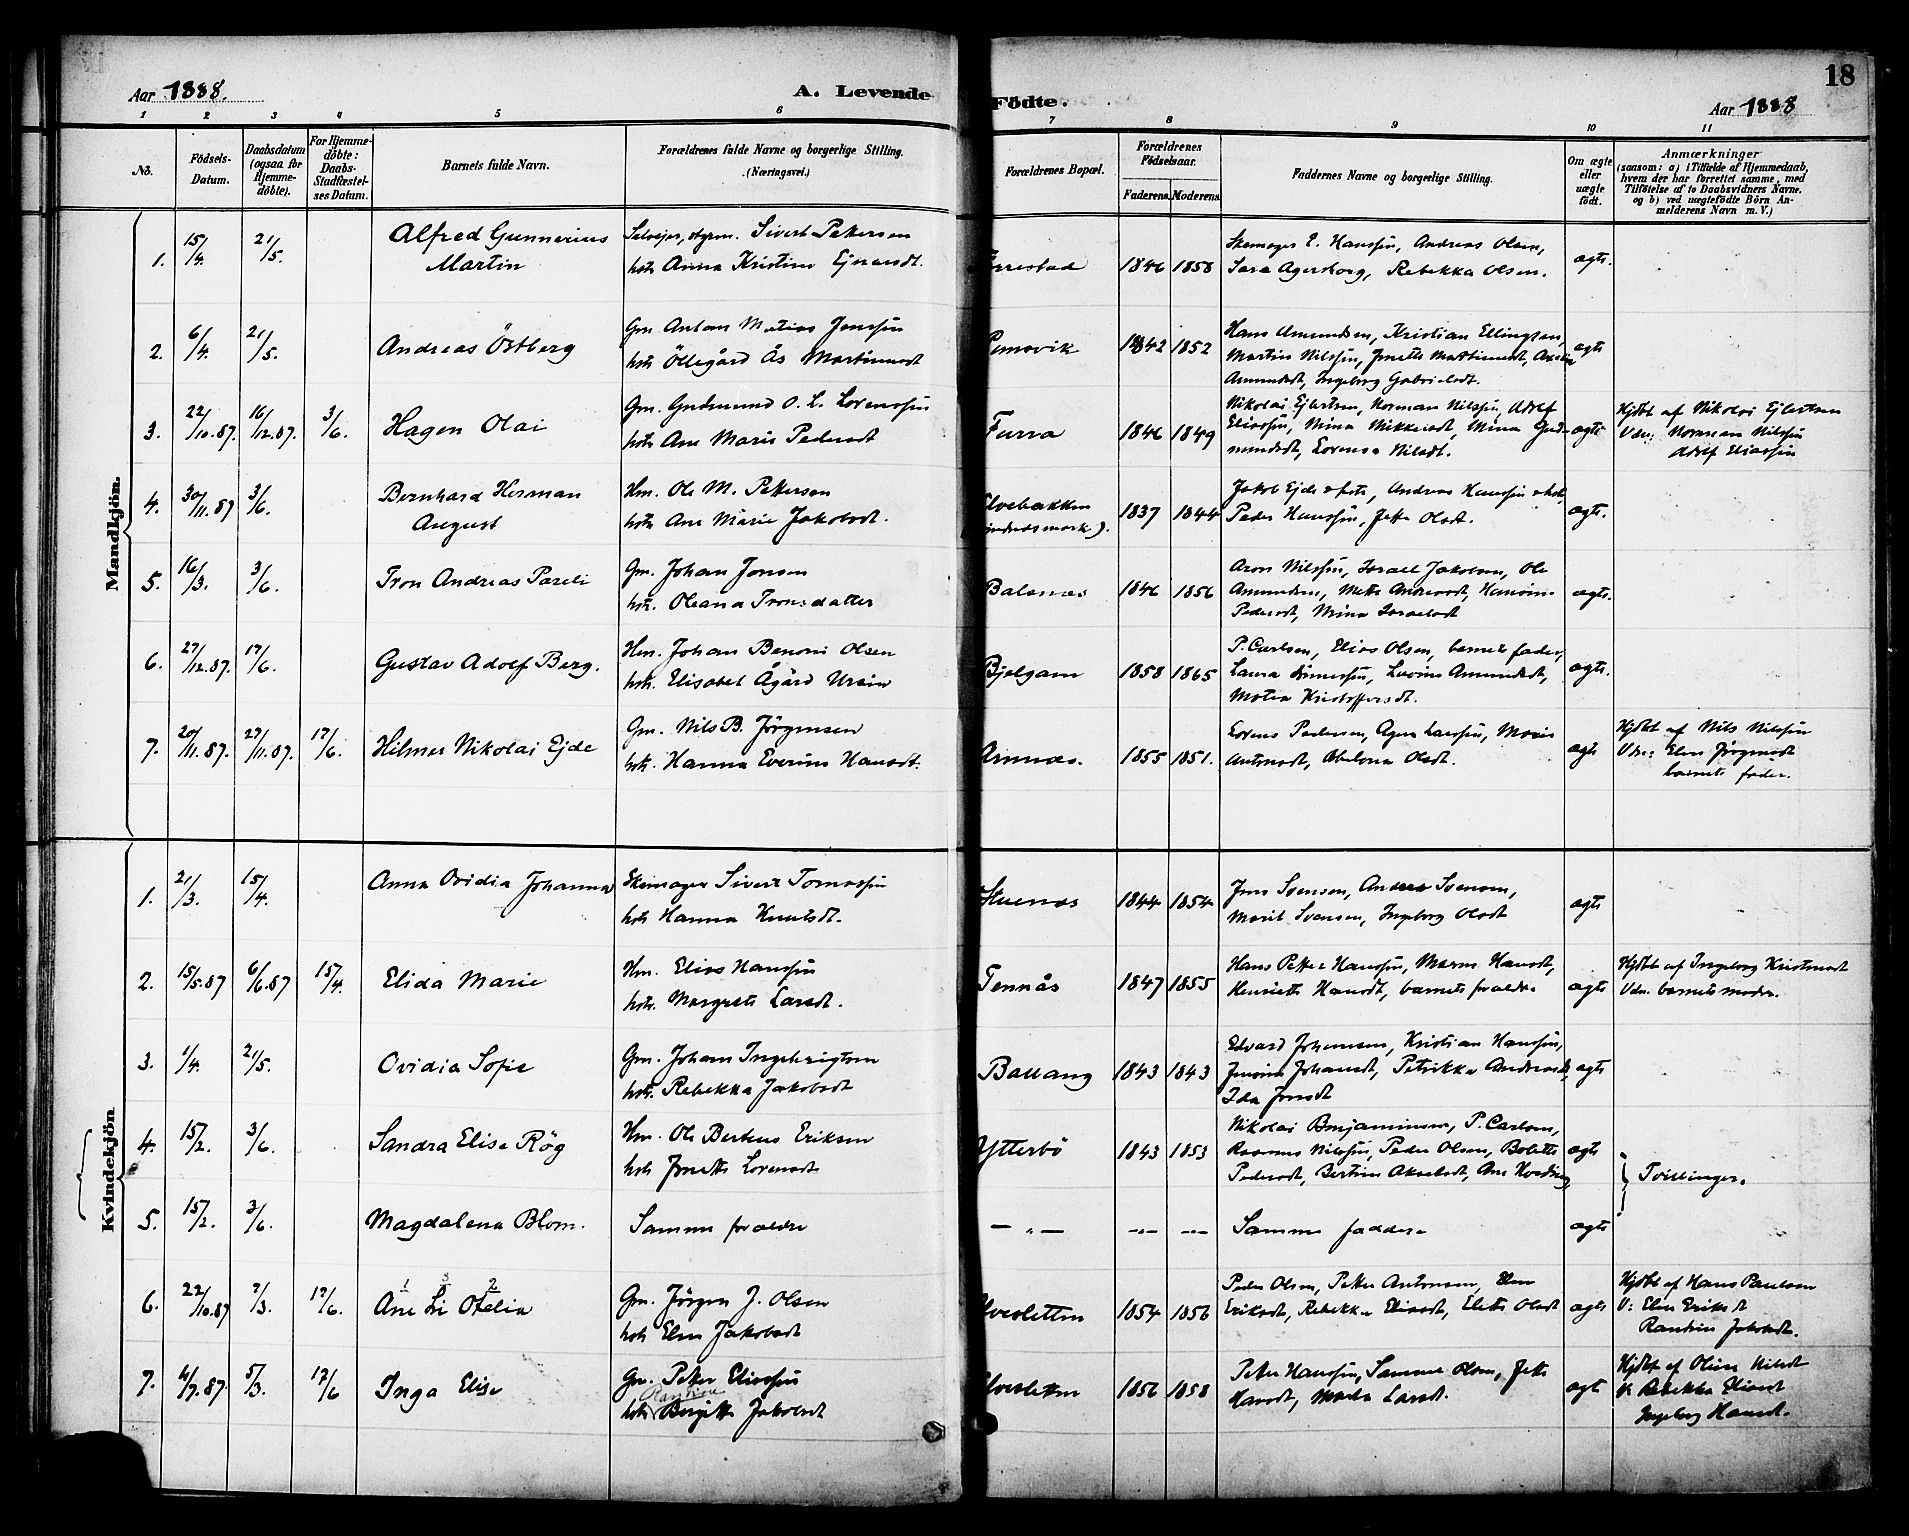 18
Aar 1888.
A. Levende Födte.
Aar 1888
1 2 3 4 5 6 7 8 9 10 11
No.
Födsels-Datum.
Daabsdatum (ogsaa for Hjemme-döbte).
For Hjemme-döbte: Daabs-Stadfæstel-ses Datum.
Barnets fulde Navn.
Forældrenes fulde Navne og borgerlige Stilling. (Næringsvei.)
Forældrenes Bopæl.
Forældrenes Födselsaar.
Faderens. Moderens.
Faddernes Navne og borgerlige Stilling.
Om ægte eller uægte födt.
Anmærkninger
(saasom: a) i Tilfælde af Hjemmedaab,
hvem der har forrettet samme, med
Tilföielse af to Daabsvidners Navne,
og b) ved uægtefödte Börn An-
melderens Navn m. V.)
Mandkjön.
1. 15/4. 21/5. Alfred Gunnerius Sivert Petersen 1846 1858 Hanssen, Andreas Olsen, ægte.
Martin hstr Anna Kristine Rebekka Olsen.
2. 6/4. 21/5. Andreas Östberg Gm. Anton Matias Jenssen 1842 1852 Hans Amundsen, Kristian Ellingsen, ægte
hstr Öllegård Ås Martinusdt Martin Nilssen,
Amundsdt, Ingeborg Gabrielsdt.
3. 22/10.87. 16/12.87. 3/6. Hagen Olai Gm. Gudmund O. L. Lorenssen Furra 1846 1849 Nikolai Ejlertsen, Norman Nilssen, Adolf ægte Hjdbt af Nikolai Ejlertsen
hstr Ane Marie Pedersdt Eliassen, Mina Mikkelsdt, Mina Gud- Vdn: Norman Nilssen
mundsdt, Lorensa Nilsdt. Adolf Eliassen
4. 30/11.87 3/6. Bernhard Herman Hm. Ole M. Pettersen Elvebakken 1837 1844 Jakob Ejde & hstr, Andreas Hanssen & hstr, ægte.
August hstr Ane Marie Jakobsdt. Peder Hanssen, Jette Olsdt.
5. 16/3. 3/6. Tron Andreas Pareli Gm. Johan Jonsen Balsnes 1846 1856 Aron Nilssen, Israel Jakobsen, Ole ægte.
hstr. Oleana Tronsdatter Amundsen, Mette Andreasdt,
Pedersdt, Mina Israelsdt
6. 27/12.87. 17/6. Gustav Adolf Berg. Hm. Johan Benoni Olsen Bjelgam 1858 1865 P. Carlsen, Elias Olsen, barnets fader, ægte.
hstr. Elisabet Ågård Ursin Laura Amundsdt,
Kristoffersdt.
7. 20/11.87. 27/11.87. 17/6. Hilmer Nikolai Ejde Gm. Nils B. Jörgensen Arnnes. 1855 1851. Lorens Pedersen, ægte Hjdbt af Nils Nilssen
hstr. Hanna Everine Hansdt. Antonsdt, Abelona Olsdt. Vdn: Elen Jörgensdt
barnets fader.
Kvindekjön.
1. 21/3. 15/4. Anna Ovidia Johanna Skomager Sivert Tomassen Stuenes 1844 1854 Jens Svensen, Anders Svensen, ægte
hstr Hanna Knutsdt. Marit Svensen, Ingeborg Olsdt
2. 15/5.87 6/6.87 15/4. Elida Marie Hm. Elias Hanssen Tennås 1847 1855 Hans Petter Hanssen, Maren Hansdt, ægte Hjdbt af Ingeborg Kristensdt
hstr. Margrete Larsdt. Henriette Hansdt, barnets forældre Vdn. barnets moder.
3. 1/4. 21/5. Ovidia Sofie Gm. Johan Ingebrigtsen Ballang 1843 1843 Edvard Johansen, Kristian Hanssen, ægte
hstr. Rebekka Jakobsdt Johansdt, Petrikka Andreasdt,
Ida Jensdt
4. 15/2. 3/6. Sandra Elise Røg Hm. Ole Berteus Eriksen Ytterbö 1843 1853 Nikolai Benjaminsen, P. Carlsen, ægte
hstr Jonette Lorensdt Rasmus Nilssen, Peder Olsen, Bolette
Pedersdt, Bertine Akselsdt, Ane Hveding
Tvillinger.
5. 15/2. 3/6. Magdalena Blom. Samme forældre — „ — Samme faddere ægte
6. 22/10.87 7/3. 17/6. Ane Li Otelia 1 3 2 Gm. Jörgen J. Olsen 1854 1856 Peder Olsen, Petter Antonsen, Elen ægte Hjdbt af Hans Paulsen
hstr Elen Jakobsdt Eriksdt, Rebekka Eliasdt, Elette Olsdt V: Elen Eriksdt
Randine Jakobsdt.
7. 4/7.87. 5/3. 17/6 Inga Elise Gm. Petter Eliassen 1856 1858 Petter Hanssen, Samuel Olsen, Jette ægte Hjdbt af Oline Nilsdt
Randine
hstr Bergitte Jakobsdt Hansdt, Larsdt. V: Rebekka Eliasdt
Ingeborg Hansdt.